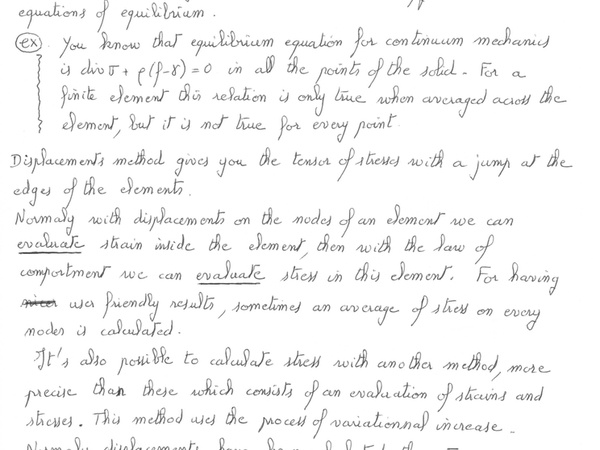 equations of equilibrium.
ex You know that equilibrium equation for continuum mechanics
is div σ + ρ(f-γ) = 0 in all the points of the solid. For a
finite element this relation is only true when averaged across the
element, but it is not true for every point.
Displacements method gives you the tensor of stresses with a jump at the
edges of the elements.
Normaly with displacements on the nodes of an element we can
evaluate strain inside the element, then with the law of
comportment we can evaluate stress in this element. For having
user friendly results, sometimes an average of stress on every
nodes is calculated.
It's also possible to calculate stress with another method, more
precise than these which consists of an evaluation of strains and
stresses. This method uses the process of variationnal increase.
Normaly displacements have